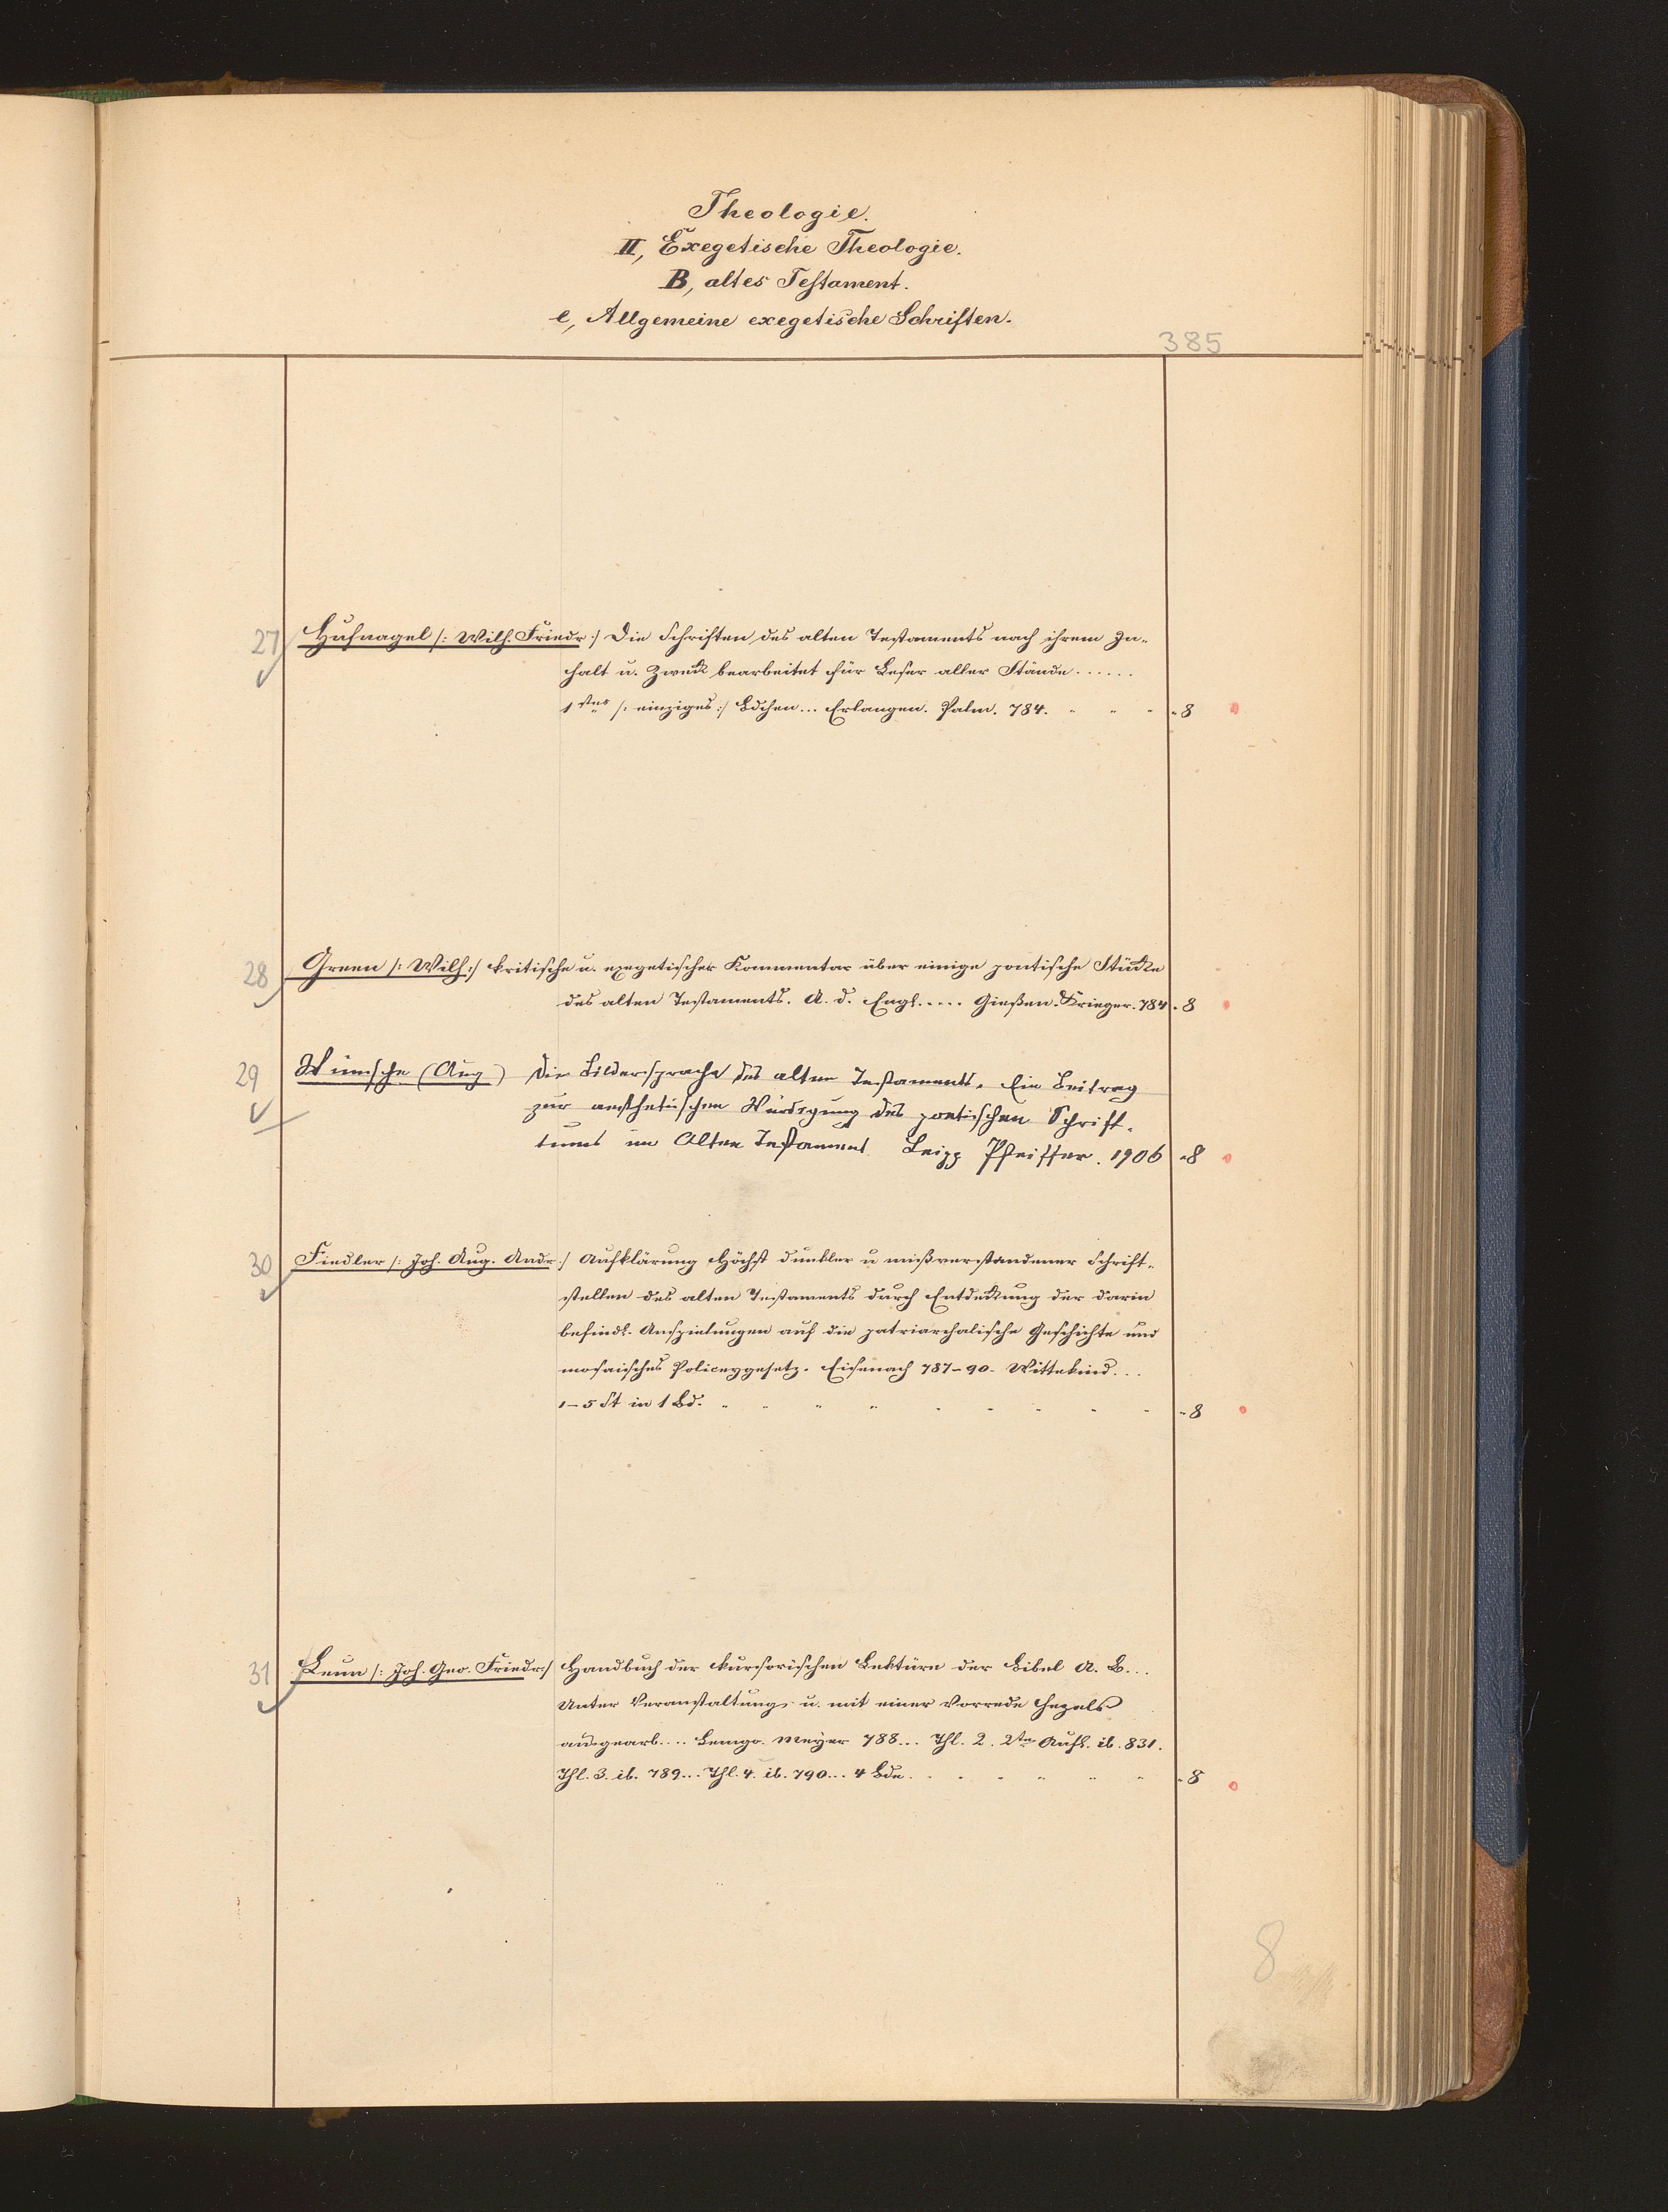 Theologie.
II, Exegetische Theologie.
B, altes Testament.
e, Allgemeine exegetische Schriften.
385
27 Hufnagel /: Wilh. Friedr :/ Die Schriften des alten Testaments nach ihrem In-
halt u. Zweck bearbeitet für Leser aller Stände......
1stes /: einziges :/ Bdchen... Erlangen. Palm. 784. " " " " 8
28 Green /: Wilh :/ kritische u. exegetischer Kommentar über einige poetische Stücke
des alten Testaments. A. d. Engl..... Gießen. Krieger. 784 " 8
29 Wünsche (Aug) Die Bildersprache des alten Testaments. Ein Beitrag
zur aesthetischen Würdigung des poetischen Schrift-
tums im Alten Testament. Leipz Pfeiffer. 1906 " 8
30 Fiedler /: Joh. Aug. Andr :/ Aufklärung höchst dunkler u mißverstandener Schrift-
stellen des alten Testaments durch Entdeckung der darin
befindl. Anspielungen auf die patriarchalische Geschichte und
mosaisches Policeygesetz. Eisenach 787-90. Wittekind...
1-5 St in 1 Bd. " " " " " " " " " " 8
31 Leun /: Joh. Geo. Friedr :/ Handbuch der kursorischen Lektüre der Bibel A. B...
Unter Veranstaltung u. mit einer Vorrede Hezels
ausgearb.... Lemgo. Meyer 788... Thl. 2. 2te Aufl. ib. 831.
Thl. 3. ib. 789... Thl. 4. ib. 790... 4 Bde. " " " " " " 8
8